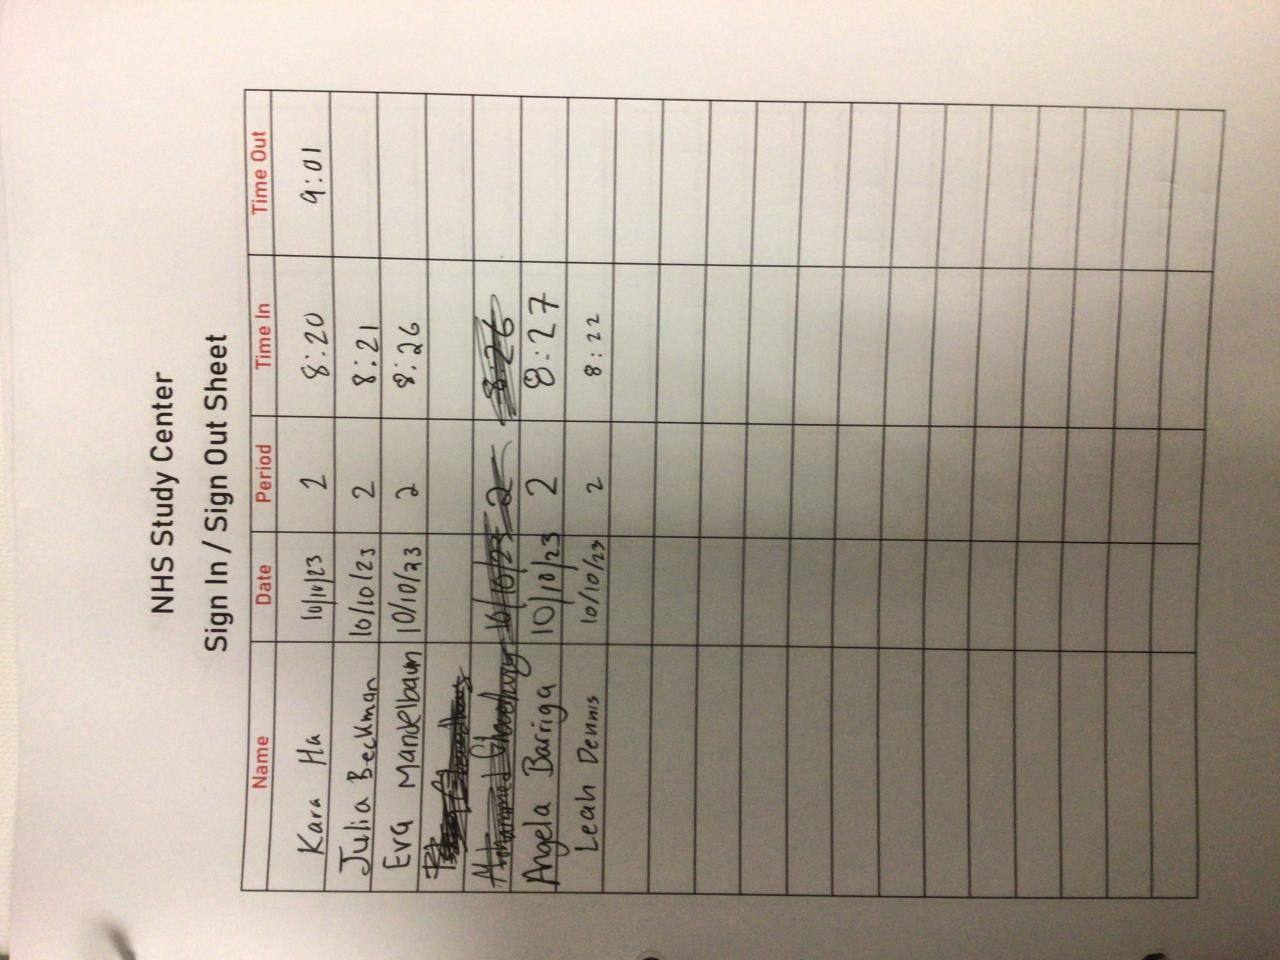 NHS Study Center
Sign In / Sign Out Sheet
Name Date Period Time In Time Out
Kara Ha 10/10/23 2 8:20 9:01
Julia Beckman 10/10/23 2 8:21
Eva Mandelbaum 10/10/23 2 8:26
10/10/23 2 8:26
Angela Barriga 10/10/23 2 8:27
Leah Dennis 10/10/23 2 8:22